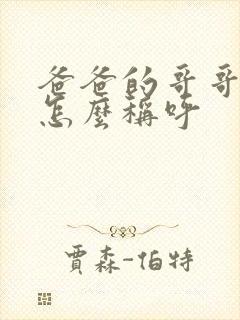 爸爸的哥哥
怎麼稱呼
賈森-伯特